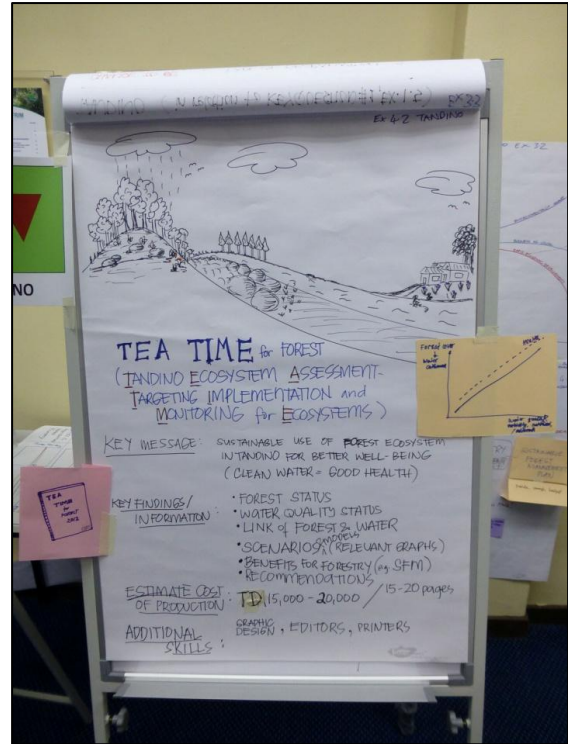 EX 3.2
Ex 4.2 TANDINO
NO
TEA TIME for FOREST
(TANDINO ECOSYSTEM ASSESSMENT-
TARGETING IMPLEMENTATION and
MONITORING for ECOSYSTEMS)
KEY MESSAGE: SUSTAINABLE USE OF FOREST ECOSYSTEM
IN TANDINO FOR BETTER WELL-BEING
(CLEAN WATER = GOOD HEALTH)
KEY FINDINGS/
INFORMATION:
• FOREST STATUS
• WATER QUALITY STATUS
• LINK of FOREST & WATER
• SCENARIOS, models (RELEVANT GRAPHS)
• BENEFITS FOR FORESTRY (eg SFM)
• RECOMMENDATIONS
ESTIMATE COST
OF PRODUCTION: TD 15,000 - 20,000 / 15-20 pages
ADDITIONAL
SKILLS:
GRAPHIC
DESIGN, EDITORS, PRINTERS
Forest cover
Water
Health
TEA
TIME
FOREST
SUSTAINABLE
FOREST
MANAGEMENT
PLAN